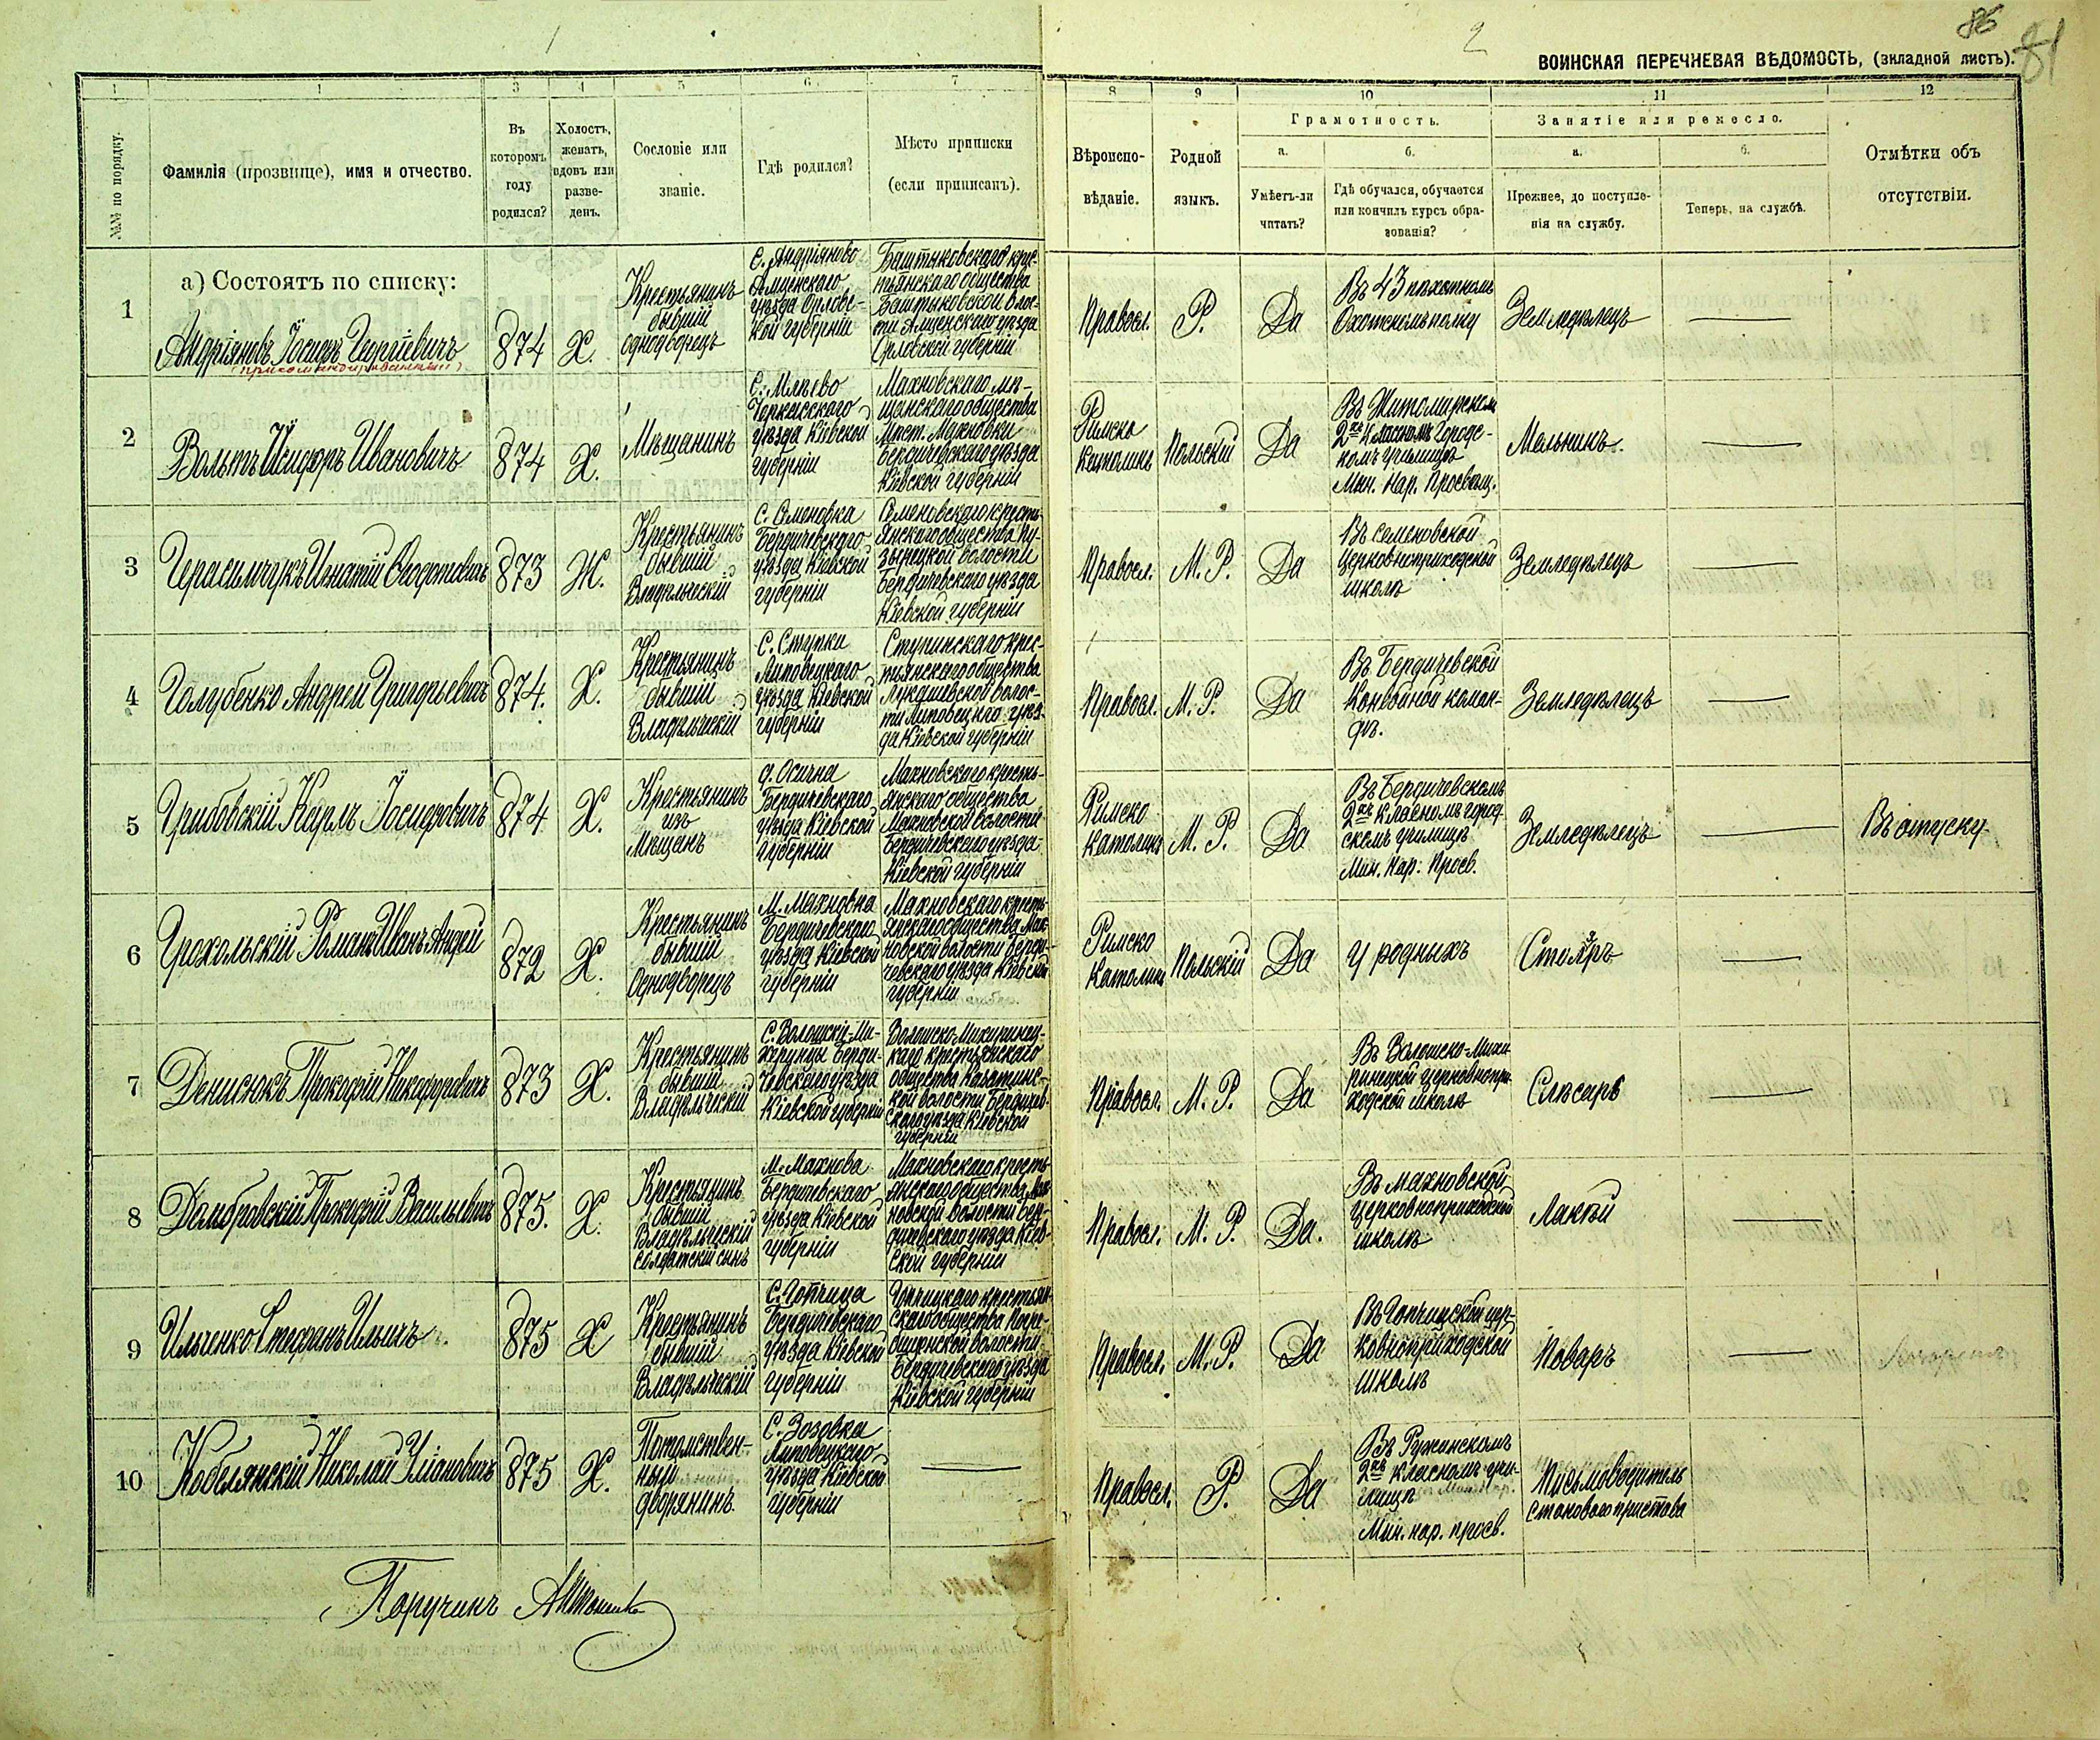 86
81
2
ВОИНСКАЯ ПЕРЕЧНЕВАЯ ВѢДОМОСТЬ, (вкладной листъ).
1
3
4
5
6
7
8
9
10
11
12
№№ по порядку.
Фамилія (прозвище), имя и отчество.
Въ
которомъ
году
родился?
Холостъ,
женатъ,
вдовъ или
разве-
денъ.
Сословіе или
званіе.
Гдѣ родился?
Мѣсто приписки
(если приписанъ).
Вѣроиспо-
вѣданіе.
Родной
языкъ.
Грамотность.
а.
б.
Умѣетъ-ли
читать?
Гдѣ обучался, обучается
или кончилъ курсъ обра-
зованія?
Занятіе или ремесло.
а.
б.
Прежнее, до поступле-
нія на службу.
Теперь, на службѣ.
Отмѣтки объ
отсутствіи.
а) Состоятъ по списку:
1
Андріяновъ Іосифъ Георгіевичъ
(прикомандированный)
874
Х.
Крестьянинъ
бывшій
однодворецъ
С. Андріяново
уѣзда Орловс-
кой губерніи
Баштыковскаго крес-
тьянскаго общества
Баштыковской волос-
ти Амценскаго уѣзда
Орловской губерніи
Правосл.
Р.
Да
Въ 43 пѣхотномъ
Охотскомъ полку
Земледѣлецъ
2
Вольтъ Исидоръ Ивановичъ
874
Х.
Мѣщанинъ
Черкасскаго
уѣзда Кіевской
губерніи
Махновскаго мѣ-
щанскаго общества
мѣст. Махновки
Бердичевскаго уѣзда
Кіевской губерніи
Римско
католикъ
Польскій
Да
Въ Житомирском
2хъ классномъ Городс-
комъ училищѣ
Мин. Нар. Просвѣщ.
Мельникъ
3
Герасимчукъ Игнатій Феодотовичъ
873
Ж.
Крестьянинъ
бывшій
Владѣльческій
С. Семеновка
Бердичевскаго
уѣзда Кіевской
губерніи
Семеновскаго кресть-
янскаго общества Пу-
зырецкой волости
Бердичевскаго уѣзда
Кіевской губерніи
Правосл.
М. Р.
Да
Въ Семеновской
церковноприходской
школѣ
Земледѣлецъ
4
Голубенко Андрей Григорьевичъ
874.
Х.
Крестьянинъ
бывшій
Владѣльческій
С. Ступки
Липовецкаго
уѣзда Кіевской
губерніи
Ступинскаго крес-
тьянскаго общества
Лукашевской волос-
ти Липовецкаго уѣз-
да Кіевской губерніи
Правосл.
М. Р.
Да
Въ Бердичевской
Конвойной коман-
дѣ.
Земледѣлецъ
5
Грибовскій Карлъ Іосифовичъ
874
Х.
Крестьянинъ
изъ
Мѣщанъ
д. Осична
Бердичевскаго
уѣзда Кіевской
губерніи
Махновскаго кресть-
янскаго общества
Махновской волости
Бердичевскаго уѣзда
Кіевской губерніи
Римско
католикъ
М. Р.
Да
Въ Бердичевскомъ
2хъ класномъ город-
скомъ училищѣ
Мин. Нар: Просв.
Земледѣлецъ
Въ отпуску
6
Грохольскій Романъ Иванъ Андрей
872
Х.
Крестьянинъ
бывшій
Однодворецъ
М. Махновка
Бердичевскаго
уѣзда Кіевской
губерніи
Махновскаго кресть-
янскаго общества Мах-
новской волости Берди-
чевскаго уѣзда Кіевской
губерніи
Римско
католикъ
Польскій
Да
у родныхъ
Столяръ
7
Денисюкъ Прокофій Никифоровичъ
873
Х.
Крестьянинъ
бывшій
Владѣльческій
С. Волошскіе-Ми-
хиринцы Берди-
чевскаго уѣзда
Кіевской губерніи
Волошско-Михиринец-
каго крестьянскаго
общества Казатинс-
кой волости Бердичев-
скаго уѣзда Кіевской
губерніи
Правосл.
М. Р.
Да
Въ Волошско-Михи-
ринецкой церковнопри-
ходской школѣ
Слѣсарь
8
Домбровскій Прокофій Васильевичъ
875.
Х.
Крестьянинъ
бывшій
Владѣльческій
солдатскій сынъ
М. Махновка
Бердичевскаго
уѣзда Кіевской
губерніи
Махновскаго кресть-
янскаго общества Мах-
новской волости Бер-
дичевскаго уѣзда Кіев-
ской губерніи
Правосл.
М. Р.
Да.
Въ Махновской
церковноприходской
школѣ
Лакей
9
Ильченко Стефанъ Ильичъ
875
Х
Крестьянинъ
бывшій
Владѣльческій
С. Гопчица
Бердичевскаго
уѣзда Кіевской
губерніи
Гопчицкаго крестьян-
скаго общества Погре-
бищенской волости
Бердичевскаго уѣзда
Кіевской губерніи
Правосл.
М. Р.
Да
Въ Гопчицской цер-
ковноприходской
школѣ
Поваръ
10
Кобелянскій Николай Уліановичъ
875
Х.
Потомствен-
ный
дворянинъ
С. Зозовка
Липовецкаго
уѣзда Кіевской
губерніи
Правосл.
Р.
Да
Въ Ружинскомъ
2хъ класномъ учи-
лищѣ
Мин. нар. просв.
Письмоводитель
Становаго пристава
Поручикъ